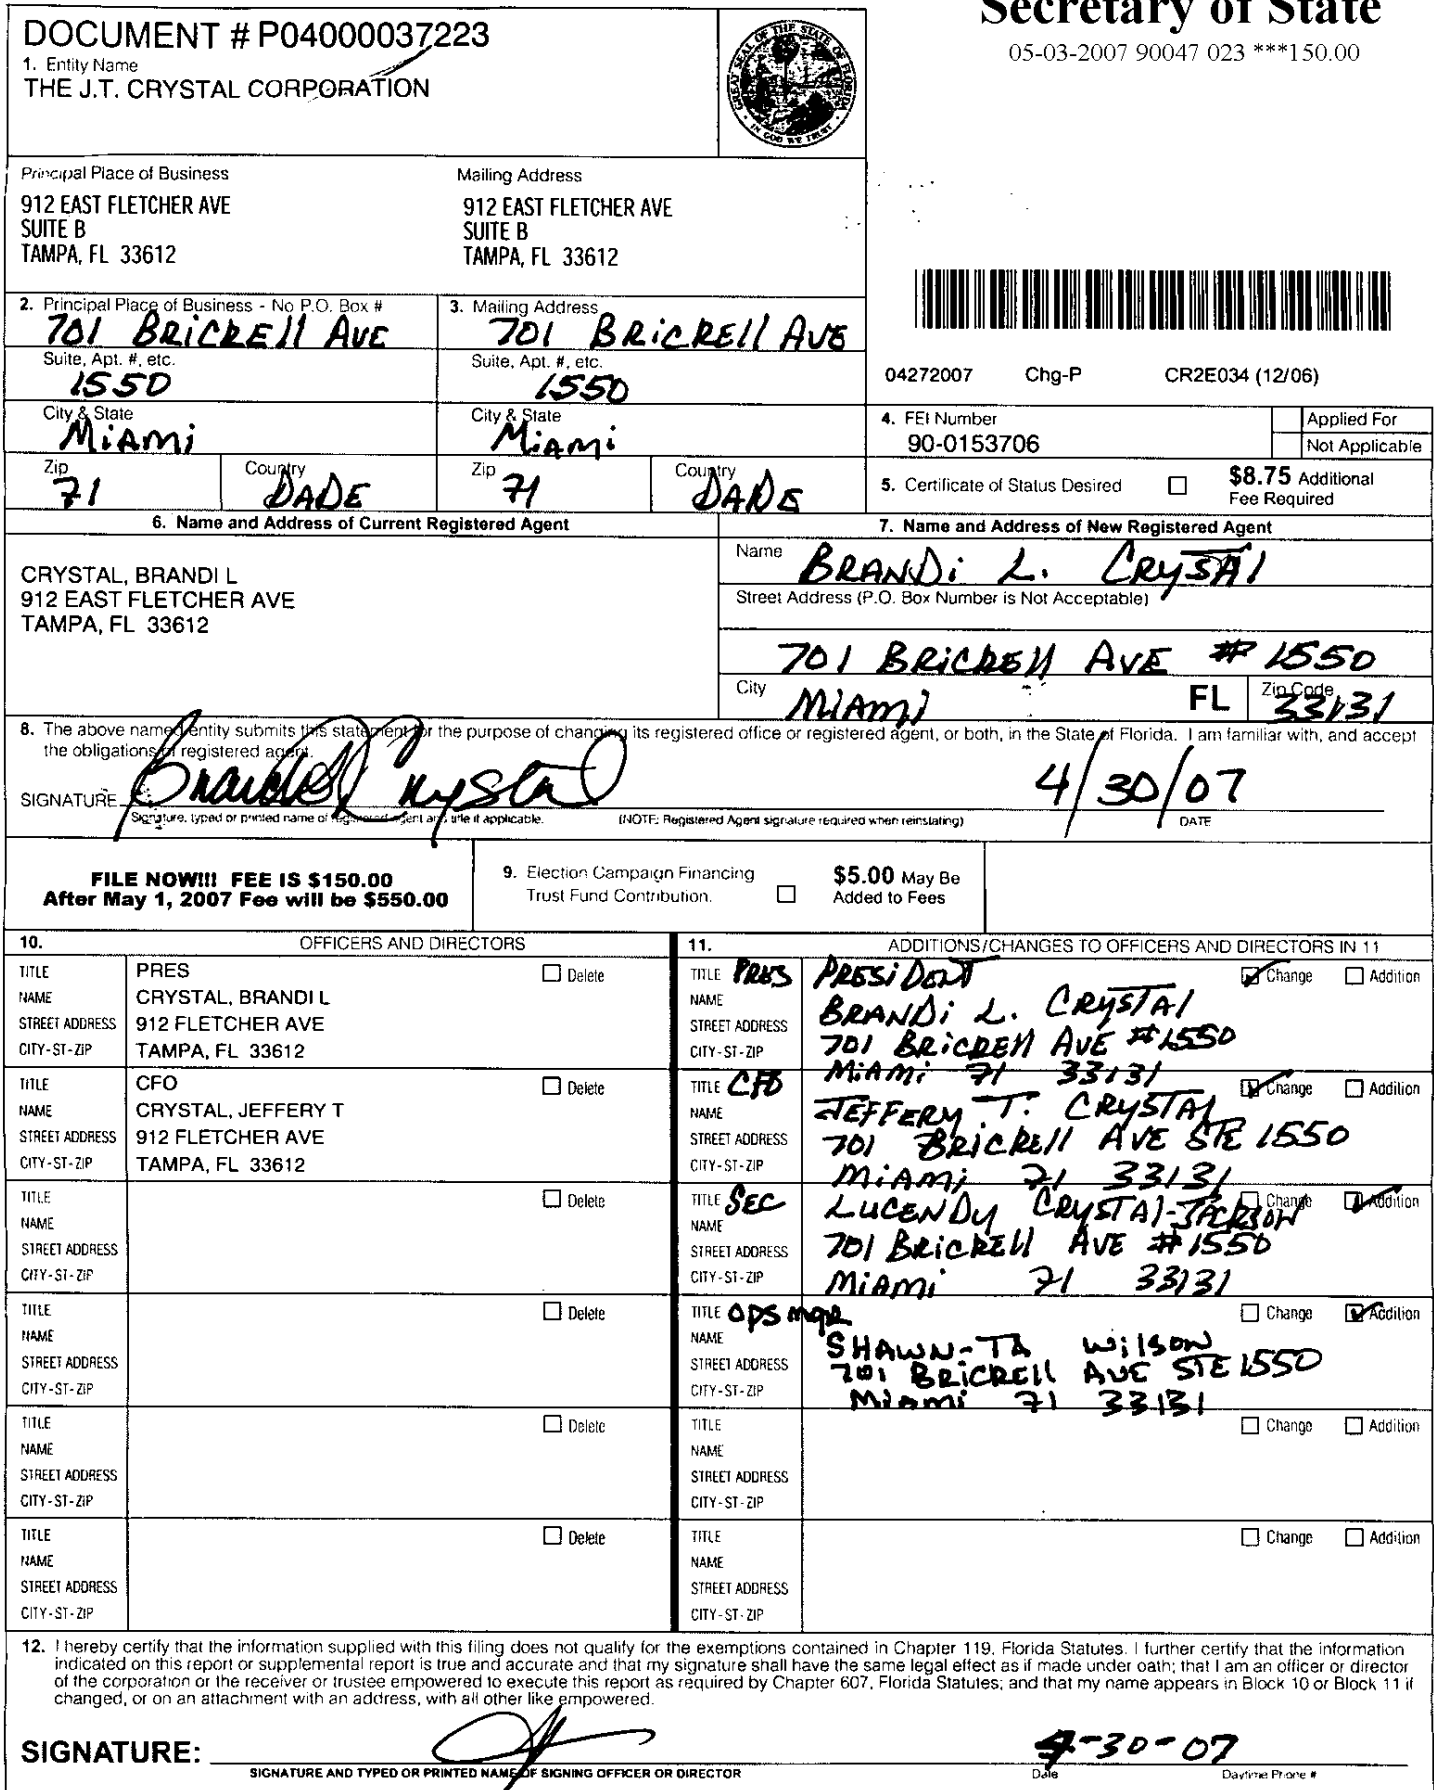 Secretary of State
05-03-2007 90047 023 ***150.00
DOCUMENT # P04000037223
1. Entity Name
THE J.T. CRYSTAL CORPORATION
GREAT SEAL OF THE STATE OF FLORIDA
IN GOD WE TRUST
Principal Place of Business
912 EAST FLETCHER AVE
SUITE B
TAMPA, FL 33612
Mailing Address
912 EAST FLETCHER AVE
SUITE B
TAMPA, FL 33612
2. Principal Place of Business - No P.O. Box #
701 BRICKEll AVE
3. Mailing Address
701 BRICKEll AVE
Suite, Apt. #, etc.
1550
Suite, Apt. #, etc.
1550
04272007 Chg-P CR2E034 (12/06)
City & State
MiAmi
City & State
MiAmi
4. FEI Number
90-0153706
Applied For
Not Applicable
Zip
71
Country
DADE
Zip
71
Country
DADE
5. Certificate of Status Desired
$8.75 Additional
Fee Required
6. Name and Address of Current Registered Agent
CRYSTAL, BRANDI L
912 EAST FLETCHER AVE
TAMPA, FL 33612
7. Name and Address of New Registered Agent
Name BRANDi L. CRYSTAl
Street Address (P.O. Box Number is Not Acceptable)
701 BRICKEll AVE # 1550
City MIAmi FL Zip Code 33131
8. The above named entity submits this statement for the purpose of changing its registered office or registered agent, or both, in the State of Florida. I am familiar with, and accept
the obligations of registered agent.
SIGNATURE Brandi L Crystal 4/30/07
Signature, typed or printed name of registered agent and title if applicable. (NOTE: Registered Agent signature required when reinstating) DATE
FILE NOW!!! FEE IS $150.00
After May 1, 2007 Fee will be $550.00
9. Election Campaign Financing
Trust Fund Contribution.
$5.00 May Be
Added to Fees
10. OFFICERS AND DIRECTORS
TITLE PRES Delete
NAME CRYSTAL, BRANDI L
STREET ADDRESS 912 FLETCHER AVE
CITY-ST-ZIP TAMPA, FL 33612
TITLE CFO Delete
NAME CRYSTAL, JEFFERY T
STREET ADDRESS 912 FLETCHER AVE
CITY-ST-ZIP TAMPA, FL 33612
TITLE Delete
NAME
STREET ADDRESS
CITY-ST-ZIP
TITLE Delete
NAME
STREET ADDRESS
CITY-ST-ZIP
TITLE Delete
NAME
STREET ADDRESS
CITY-ST-ZIP
TITLE Delete
NAME
STREET ADDRESS
CITY-ST-ZIP
11. ADDITIONS/CHANGES TO OFFICERS AND DIRECTORS IN 11
TITLE PRES PRESiDENT Change Addition
NAME BRANDi L. CRYSTAl
STREET ADDRESS 701 BRICKEll AVE #1550
CITY-ST-ZIP MiAMi 71 33131
TITLE CFO Change Addition
NAME JEFFERY T. CRYSTAl
STREET ADDRESS 701 BRICKEll AVE STE 1550
CITY-ST-ZIP MiAMi 71 33131
TITLE SEC LUCENDY CRYSTAl-JACKSON Change Addition
NAME
STREET ADDRESS 701 BRICKEll AVE #1550
CITY-ST-ZIP MiAmi 71 33131
TITLE OPS mgR Change Addition
NAME SHAWN-TA WilSON
STREET ADDRESS 701 BRICKEll AVE STE 1550
CITY-ST-ZIP Miami 71 33131
TITLE Change Addition
NAME
STREET ADDRESS
CITY-ST-ZIP
TITLE Change Addition
NAME
STREET ADDRESS
CITY-ST-ZIP
12. I hereby certify that the information supplied with this filing does not qualify for the exemptions contained in Chapter 119, Florida Statutes. I further certify that the information
indicated on this report or supplemental report is true and accurate and that my signature shall have the same legal effect as if made under oath; that I am an officer or director
of the corporation or the receiver or trustee empowered to execute this report as required by Chapter 607, Florida Statutes; and that my name appears in Block 10 or Block 11 if
changed, or on an attachment with an address, with all other like empowered.
SIGNATURE: 4-30-07
SIGNATURE AND TYPED OR PRINTED NAME OF SIGNING OFFICER OR DIRECTOR Date Daytime Phone #